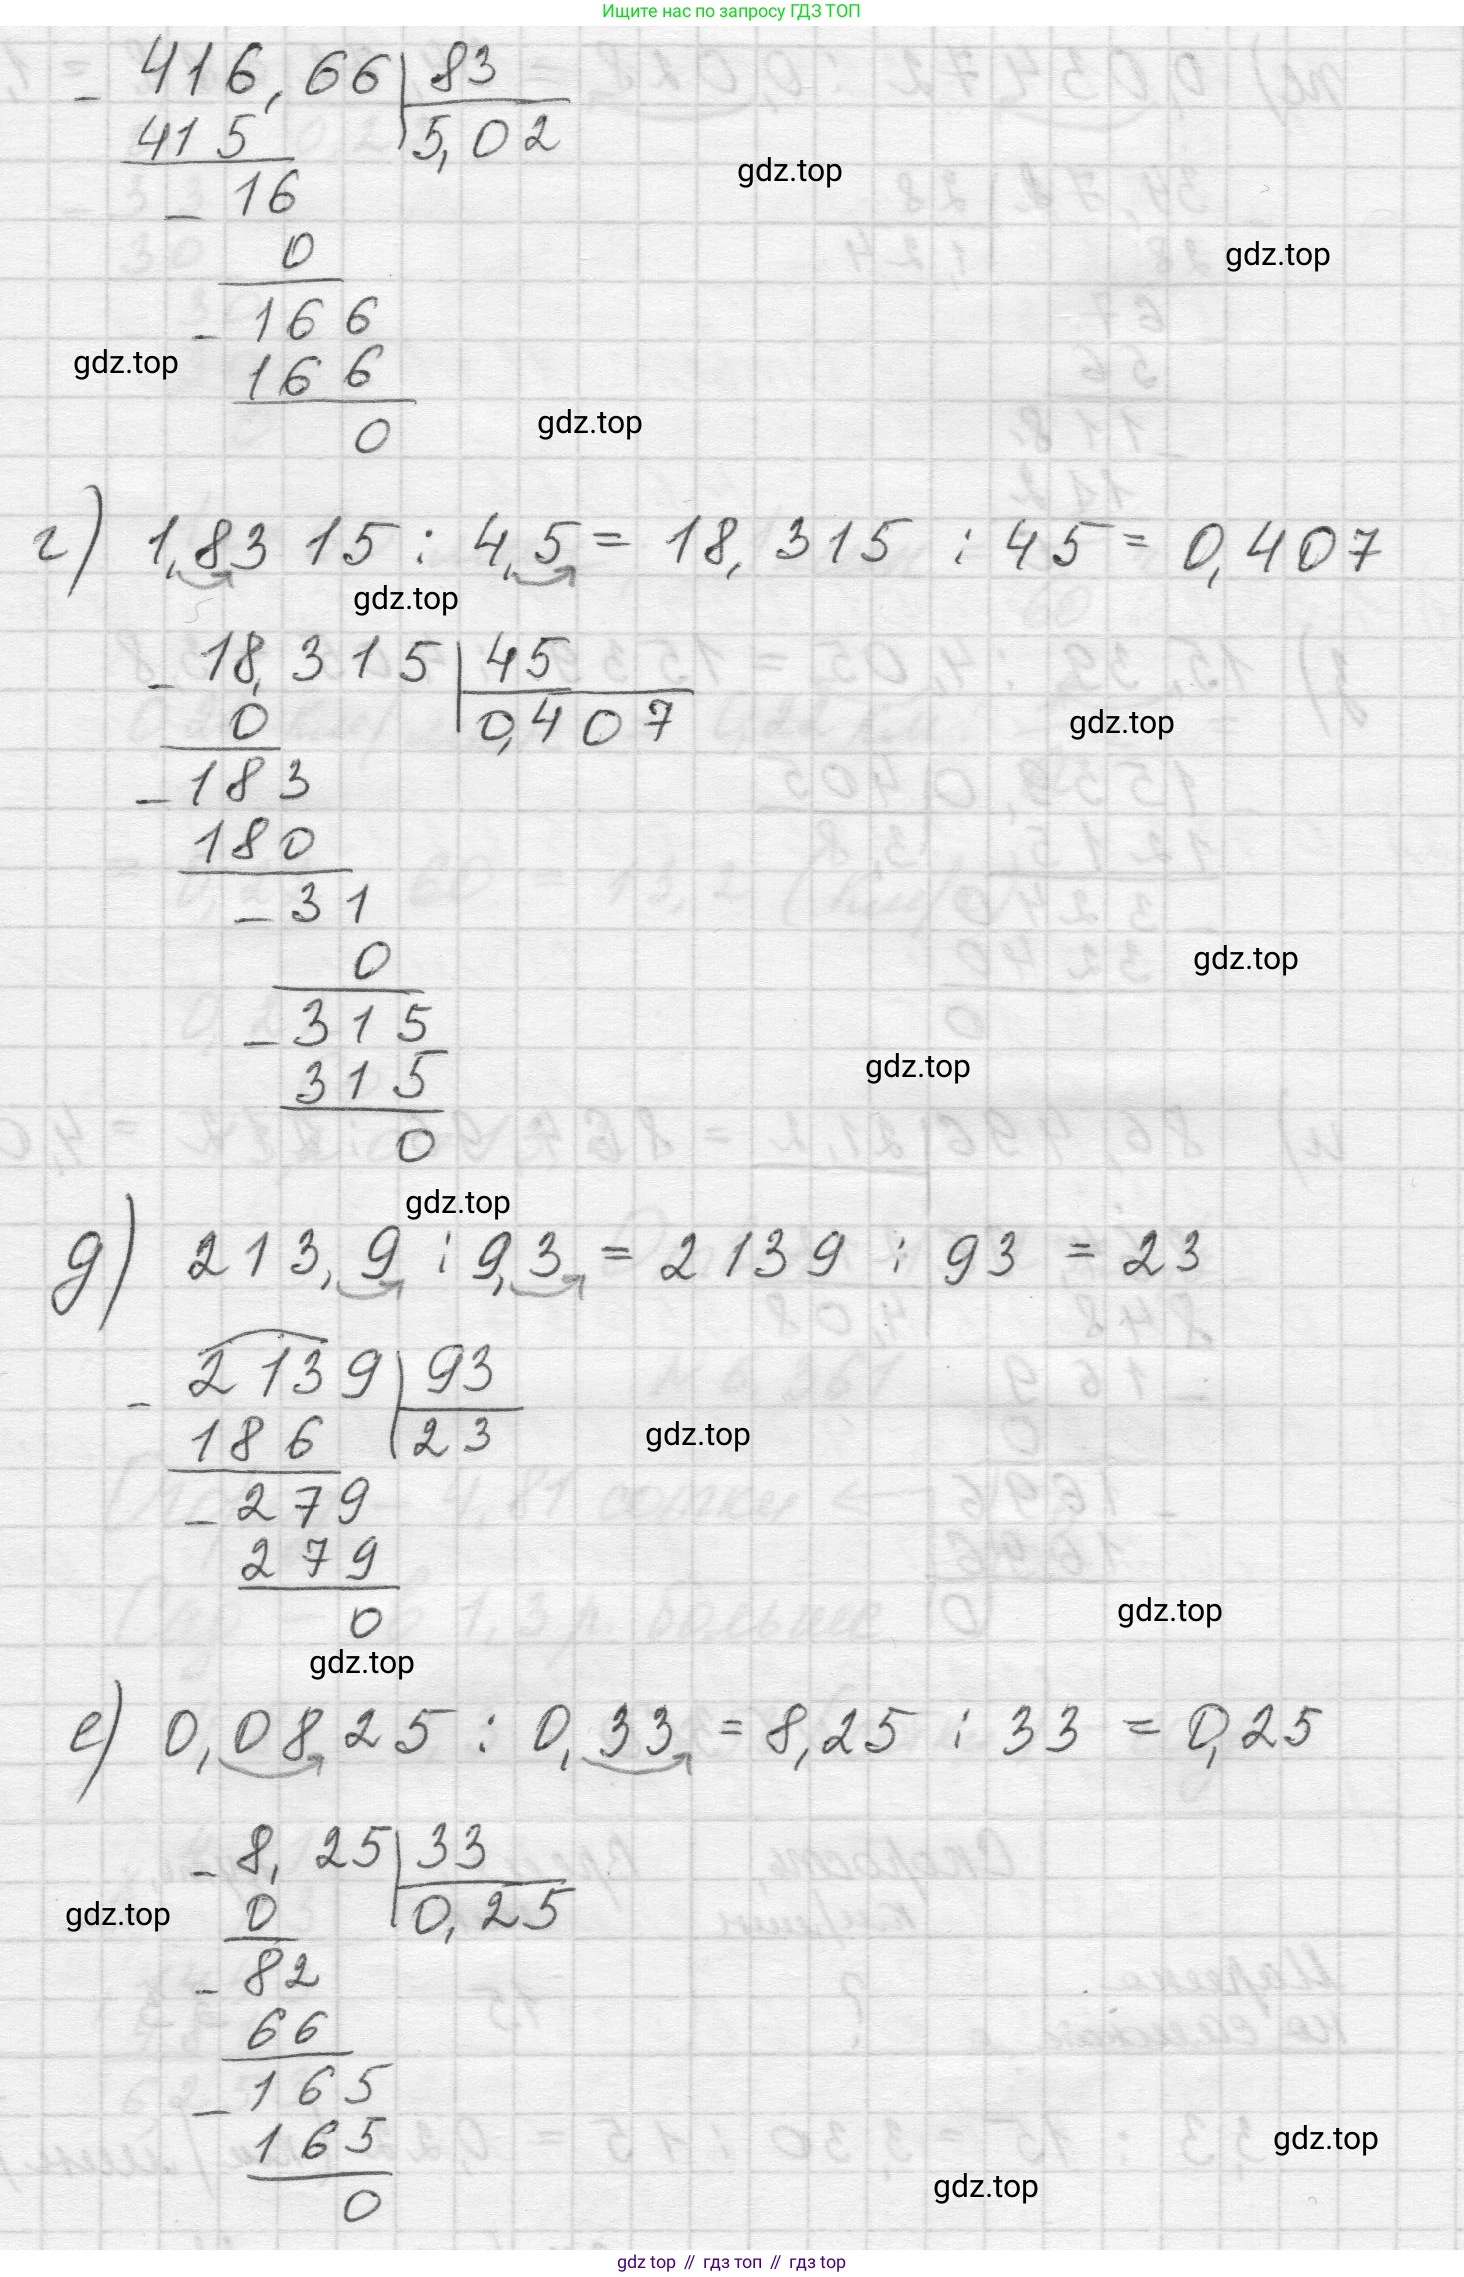 Ищите нас по запросу ГДЗ ТОП
- 416,66 | 83
415 | 5,02
gdz.top
- 16
gdz.top
0
- 166
gdz.top
166
gdz.top
0
г) 1,8315 : 4,5 = 18,315 : 45 = 0,407
gdz.top
- 18,315 | 45
0 | 0,407
gdz.top
- 183
180
- 31
0
gdz.top
- 315
gdz.top
315
0
gdz.top
д) 213,9 : 9,3 = 2139 : 93 = 23
- 2139 | 93
186 | 23
gdz.top
- 279
279
0
gdz.top
gdz.top
е) 0,0825 : 0,33 = 8,25 : 33 = 0,25
- 8,25 | 33
0 | 0,25
gdz.top
- 82
66
- 165
165
gdz.top
gdz.top
0
gdz top // гдз топ // gdz top